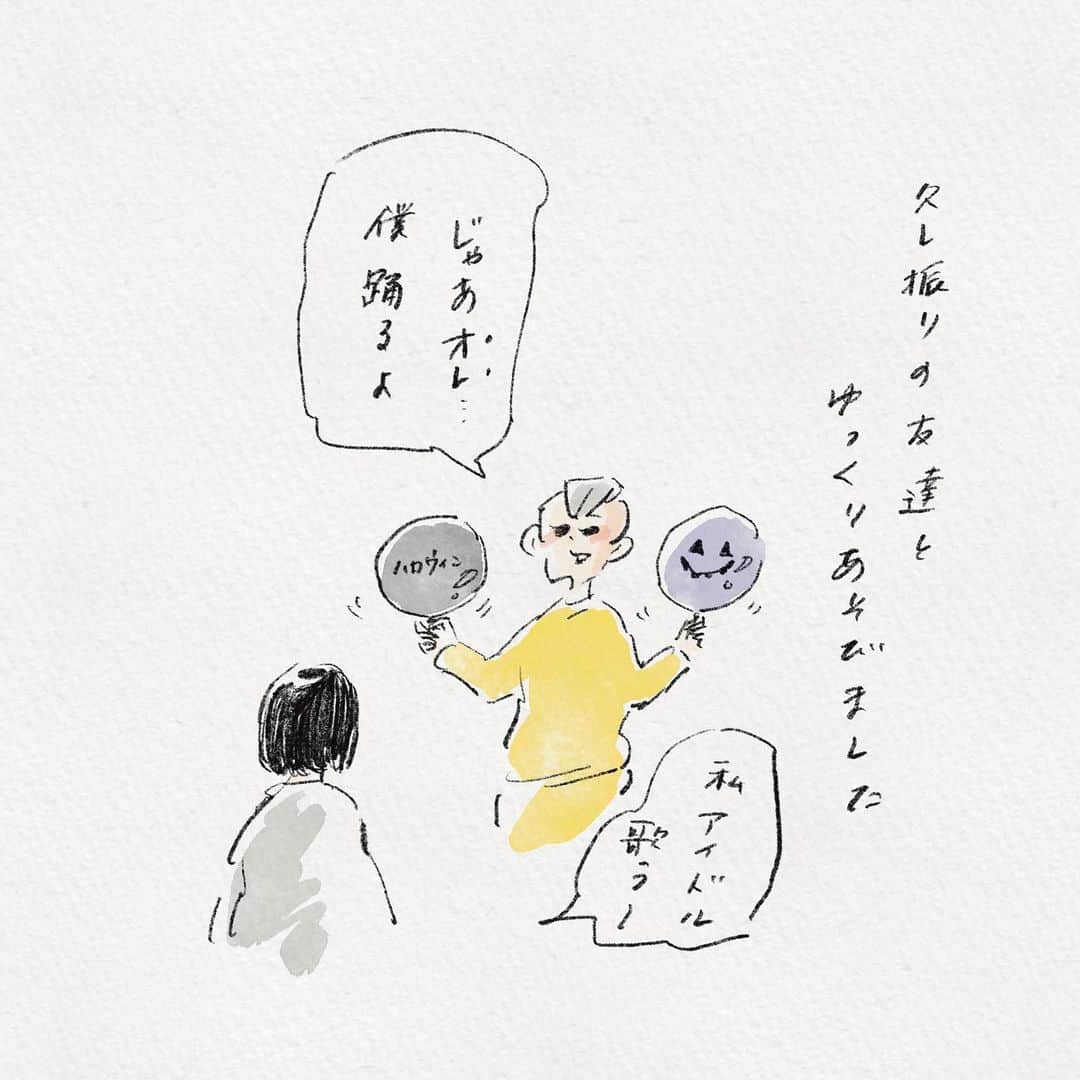 久し振りの友達と
ゆっくりあそびました
じゃあオレ…
僕踊るよ
ハロウィン
私アイドル
歌うー